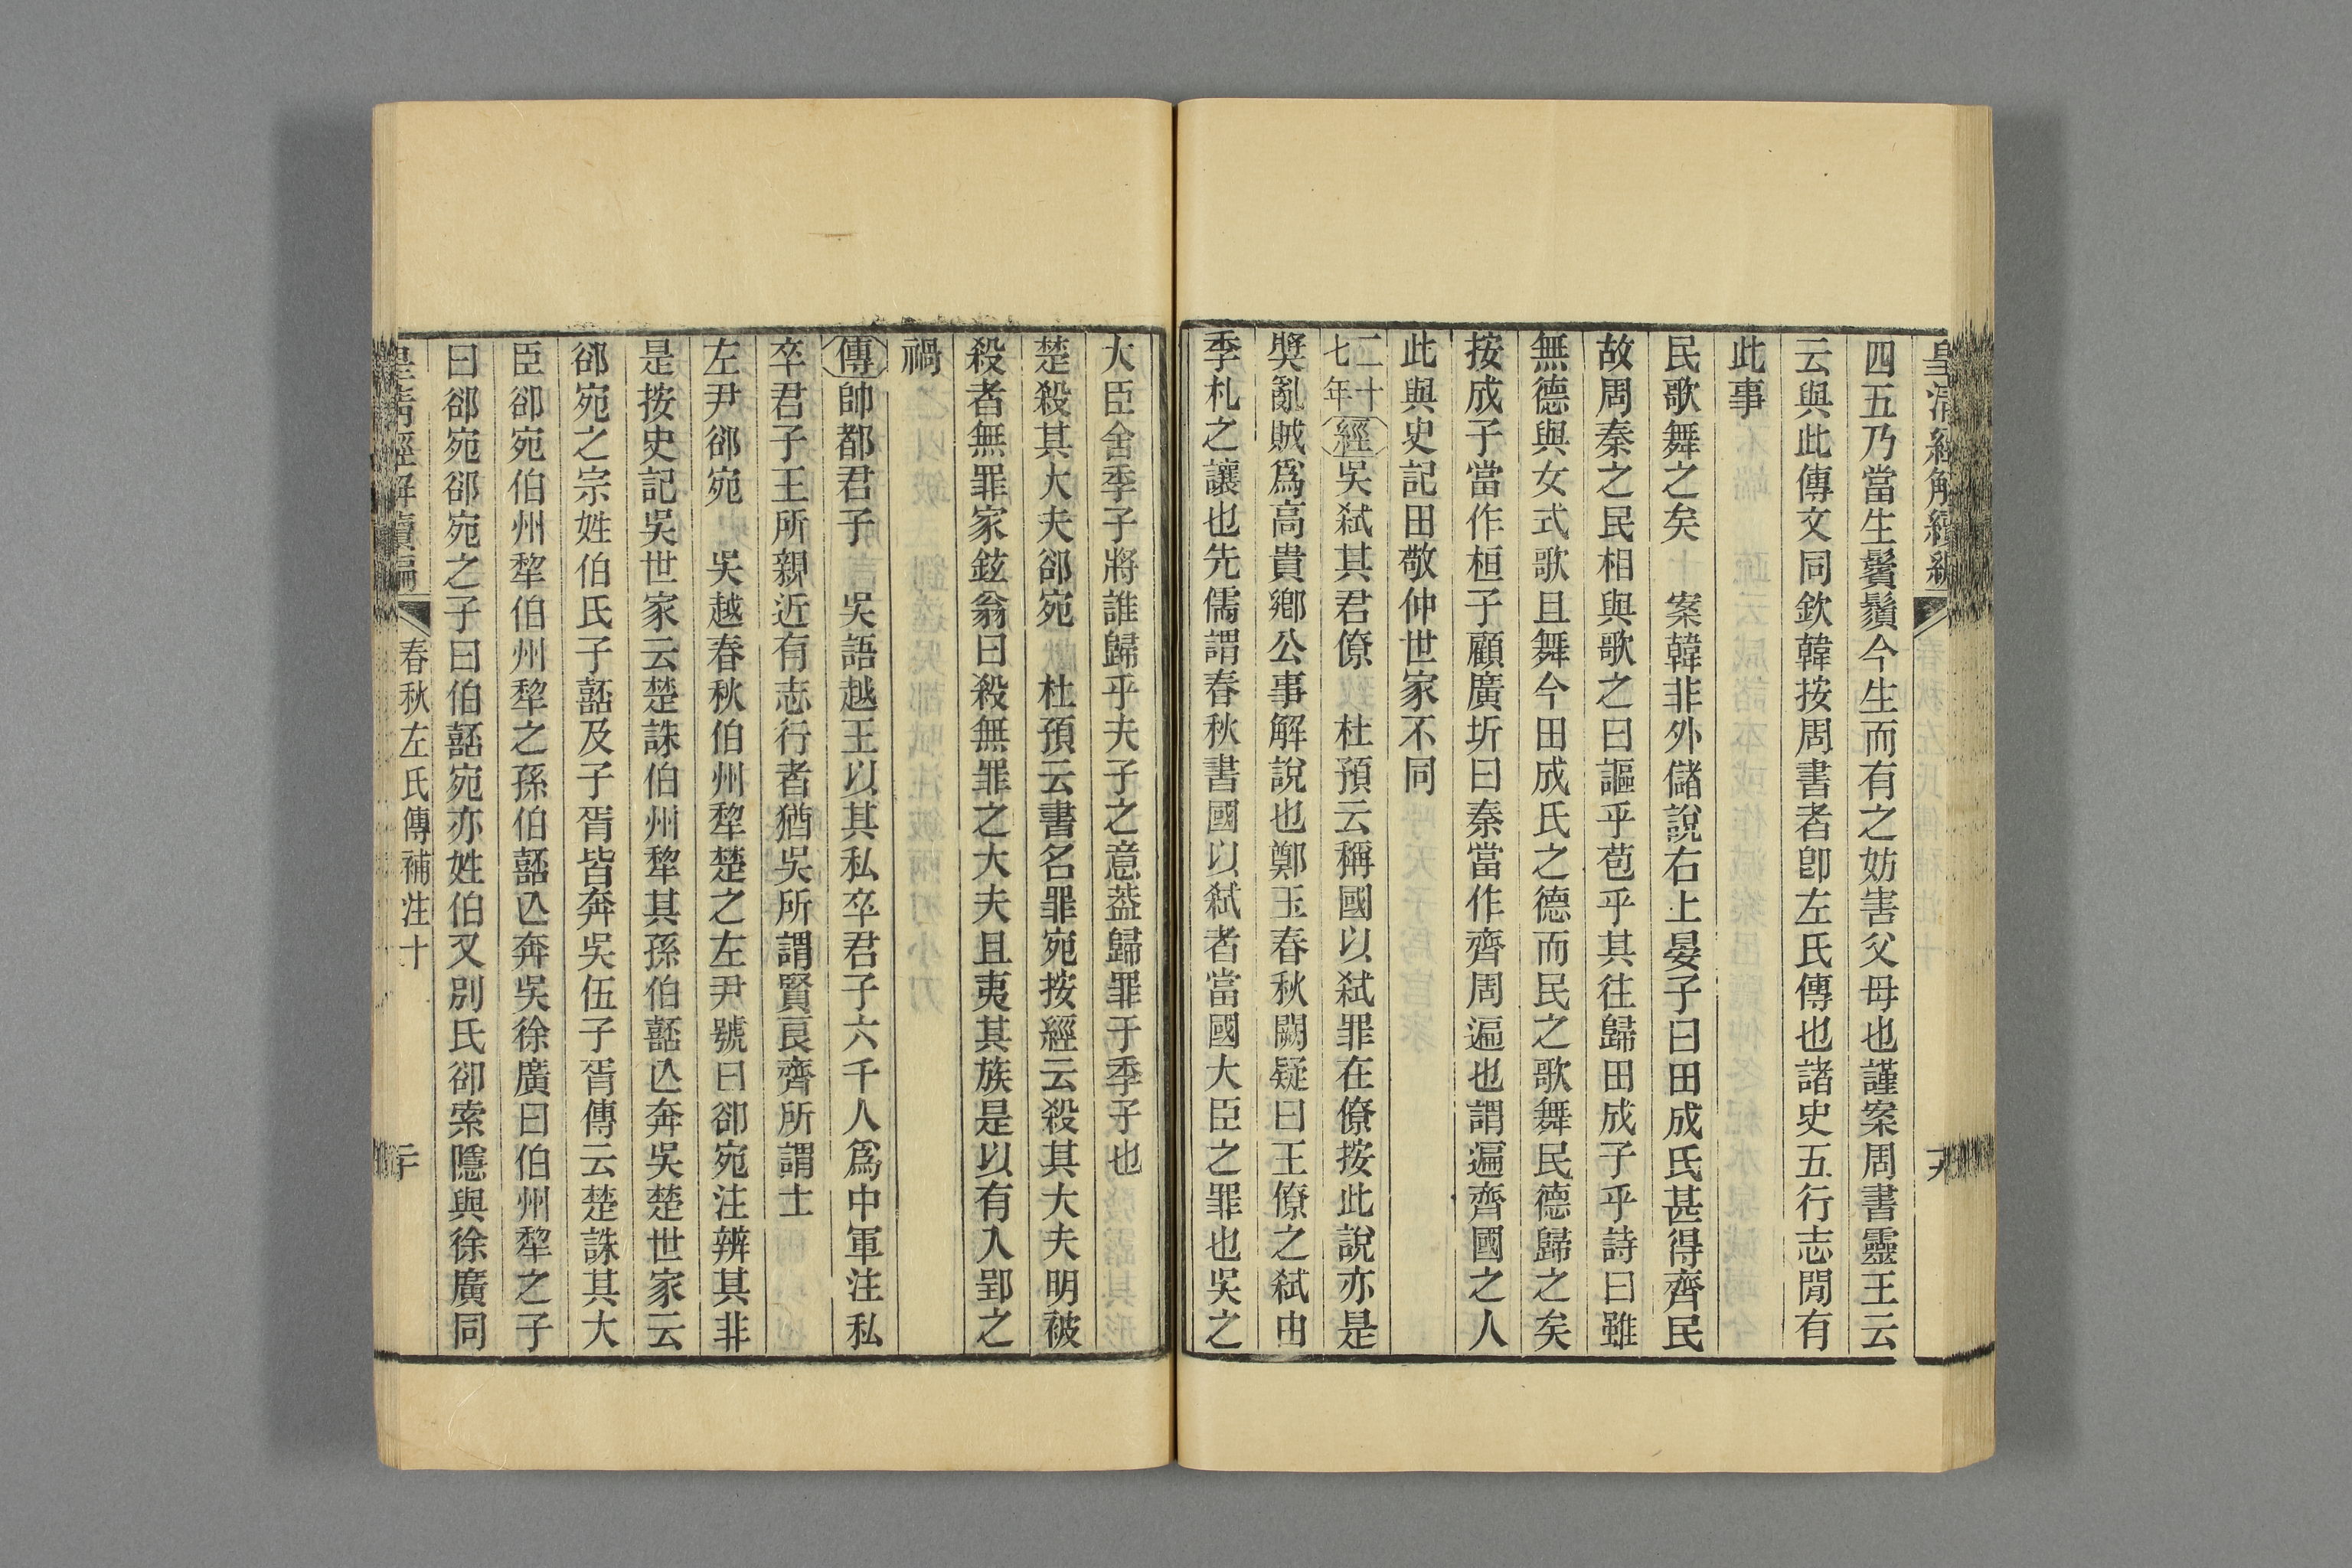 皇清經解續編
四五乃當生鬢鬚今生而有之妨害父母也謹案周書靈王云
云與此傳文同欽韓按周書者卽左氏傳也諸史五行志閒有
此事
民歌舞之矣　案韓非外儲說右上晏子曰田成氏甚得齊民
故周秦之民相與歌之曰謳乎苞乎其往歸田成子乎詩曰雖
無德與女式歌且舞今田成氏之德而民之歌舞民德歸之矣
按成子當作桓子顧廣圻曰秦當作齊周遍也謂遍齊國之人
此與史記田敬仲世家不同
二十七年經吳弑其君僚　杜預云稱國以弑罪在僚按此說亦是
奬亂賊爲高貴鄉公事解說也鄭玉春秋闕疑曰王僚之弑由
季札之讓也先儒謂春秋書國以弑者當國大臣之罪也吳之
大臣舍季子將誰歸乎夫子之意葢歸罪于季子也
楚殺其大夫郤宛　杜預云書名罪宛按經云殺其大夫明被
殺者無罪家鉉翁曰殺無罪之大夫且夷其族是以有入郢之
禍
傳帥都君子　吳語越王以其私卒君子六千人爲中軍注私
卒君子王所親近有志行者猶吳所謂賢良齊所謂士
左尹郤宛　吳越春秋伯州犂楚之左尹號曰郤宛注辨其非
是按史記吳世家云楚誅伯州犂其孫伯嚭亾奔吳楚世家云
郤宛之宗姓伯氏子嚭及子胥皆奔吳伍子胥傳云楚誅其大
臣郤宛伯州犂伯州犂之孫伯嚭亾奔吳徐廣曰伯州犂之子
曰郤宛郤宛之子曰伯嚭宛亦姓伯又別氏郤索隱與徐廣同
皇清經解續編　春秋左氏傳補注十